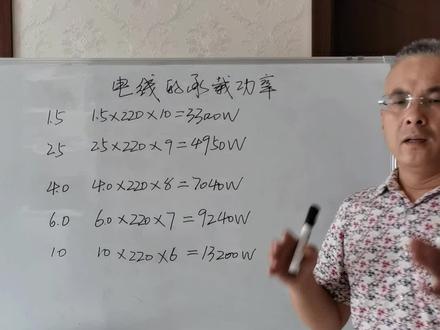 电线的承载功率
1.5 1.5×220×10=3300W
2.5 2.5×220×9=4950W
4.0 4.0×220×8=7040W
6.0 6.0×220×7=9240W
10 10×220×6=13200W